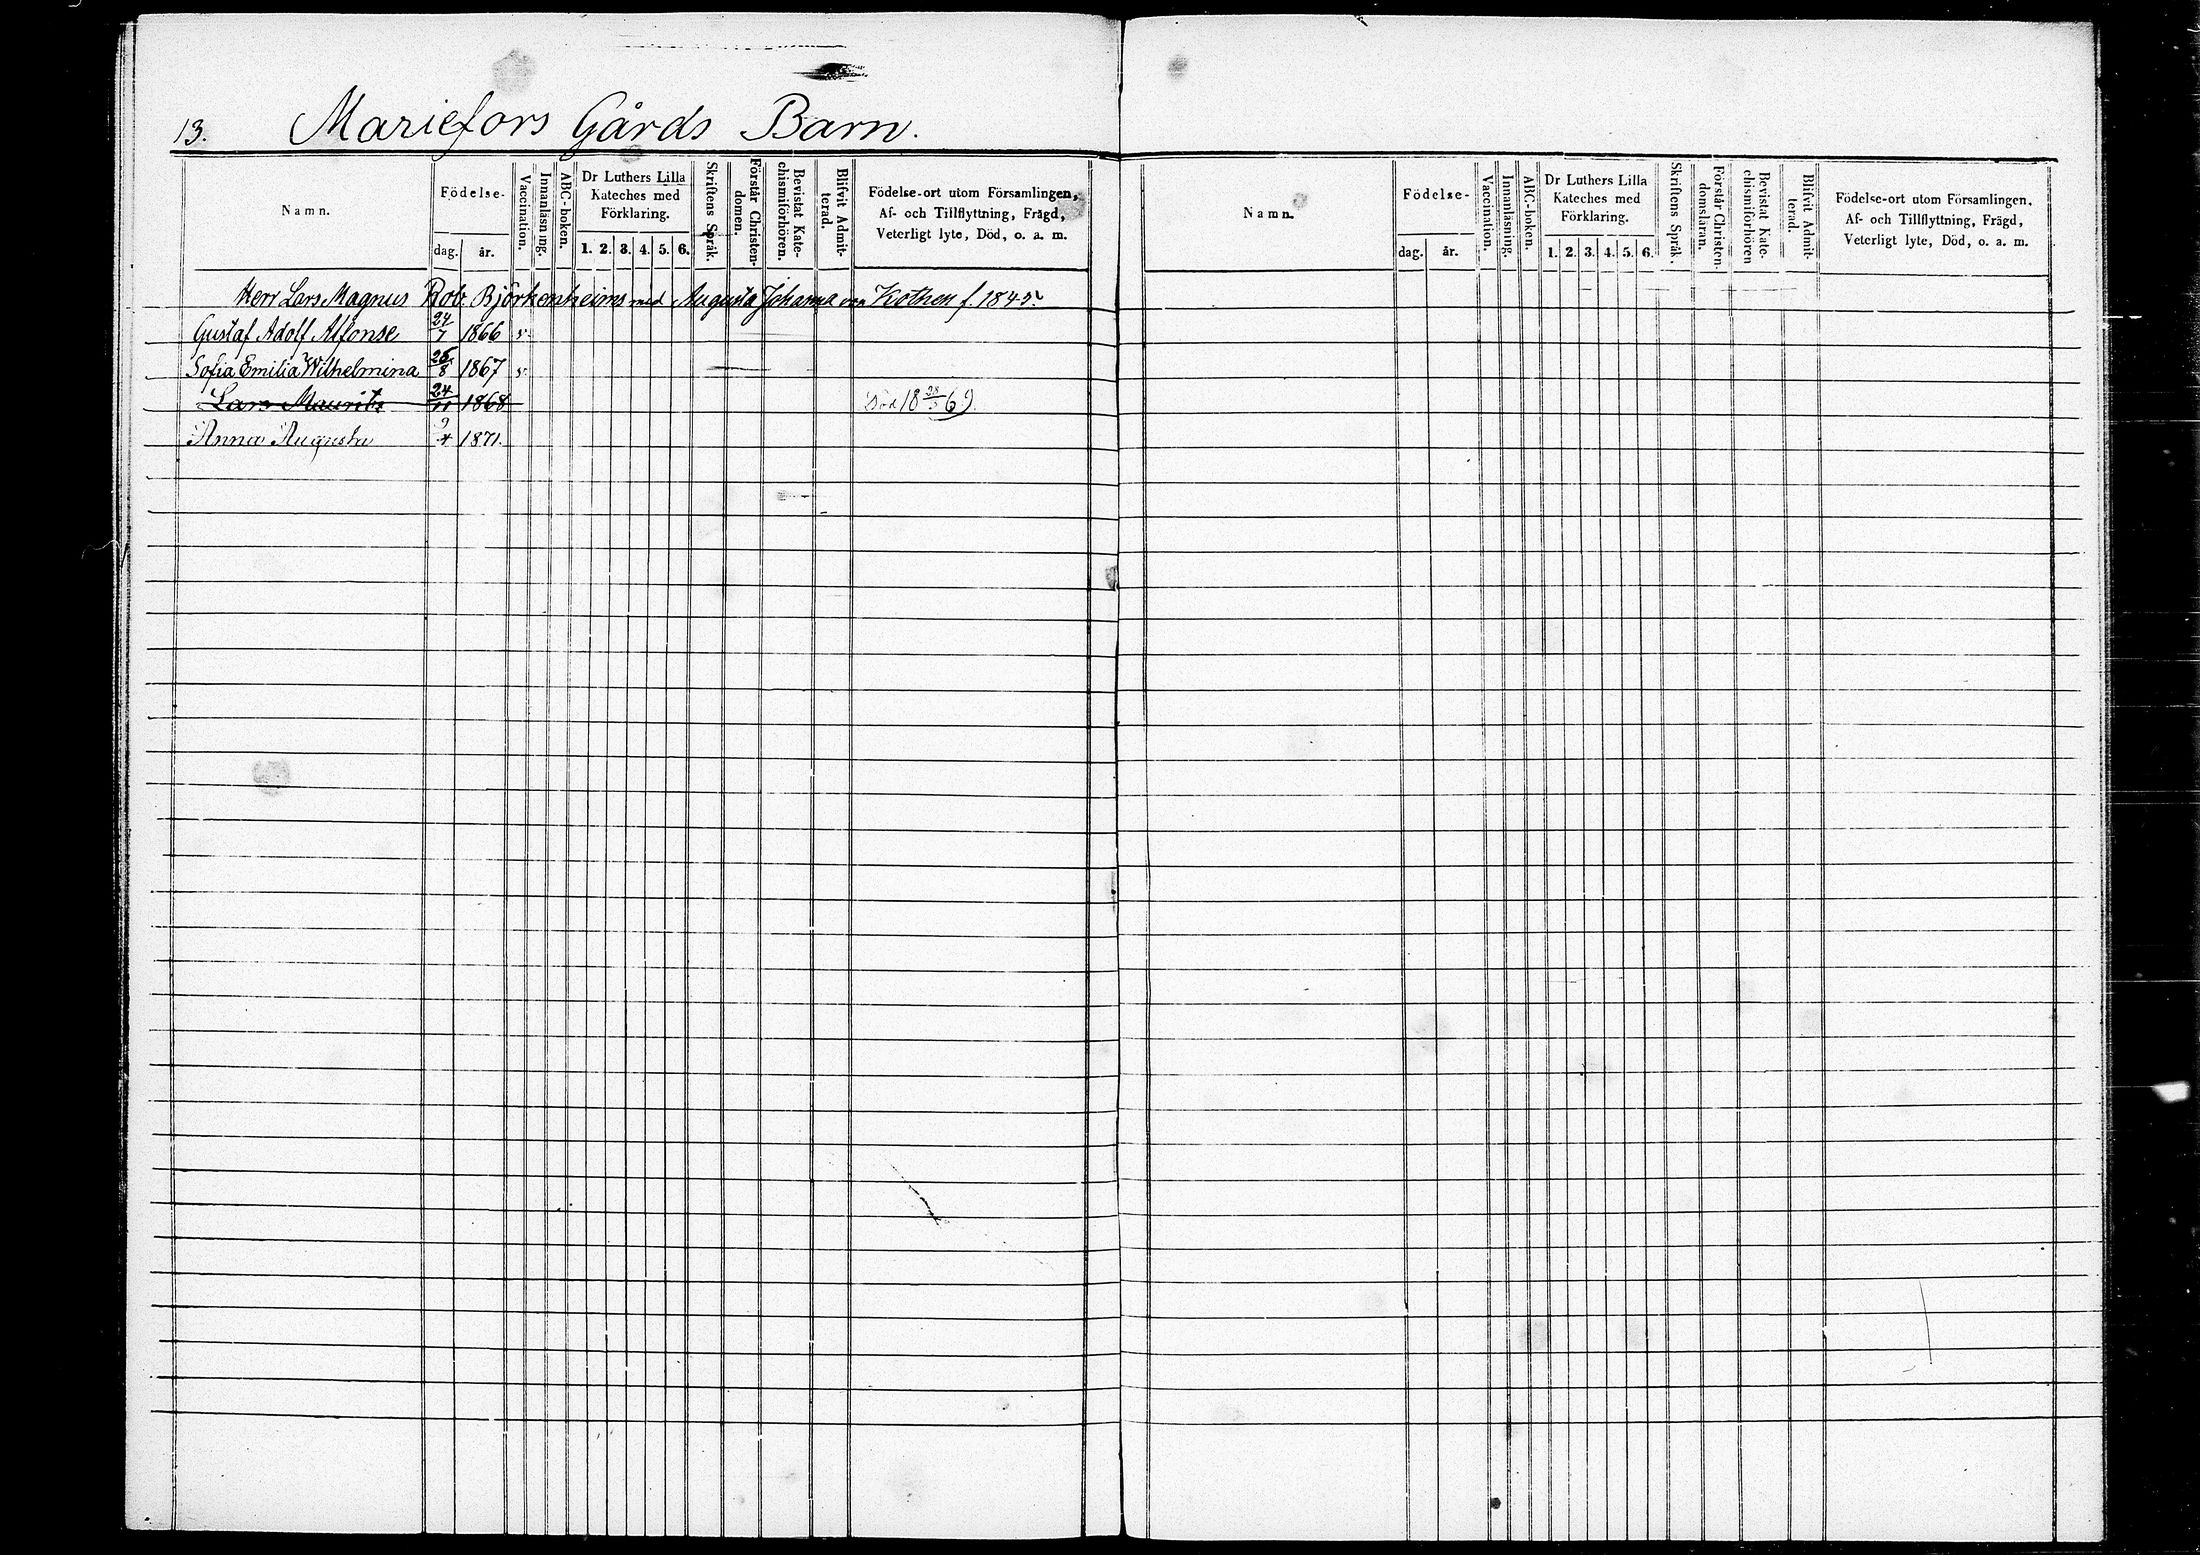 13. Mariefors Gårds Barn.
Namn.
Födelse-
dag. år.
Vaccination.
Innanläsning.
ABC-boken.
Dr Luthers Lilla
Kateches med
Förklaring.
1. 2. 3. 4. 5. 6.
Skriftens Språk.
Förstår Christen-
domen.
Bevistat Kate-
chismiförhören.
Blifvit Admit-
terad.
Födelse-ort utom Församlingen,
Af- och Tillflyttning, Frägd,
Veterligt lyte, Död, o. a. m.
Herr Lars Magnus Rob. Björkenheims med Augusta Johanna von Kothen f. 1845.
Gustaf Adolf Alfonse 24/7 1866 v.
Sofia Emilia Wilhelmina 25/8 1867 v.
Lars Maurits 24/11 1868 Död 18 28/5 69.
Anna Augusta 9/4 1871.
Namn.
Födelse-
dag. år.
Vaccination.
Innanläsning.
ABC-boken.
Dr Luthers Lilla
Kateches med
Förklaring.
1. 2. 3. 4. 5. 6.
Skriftens Språk.
Förstår Christen-
domsläran.
Bevistat Kate-
chismiförhören
Blifvit Admit-
terad.
Födelse-ort utom Församlingen,
Af- och Tillflyttning, Frägd,
Veterligt lyte, Död, o. a. m.